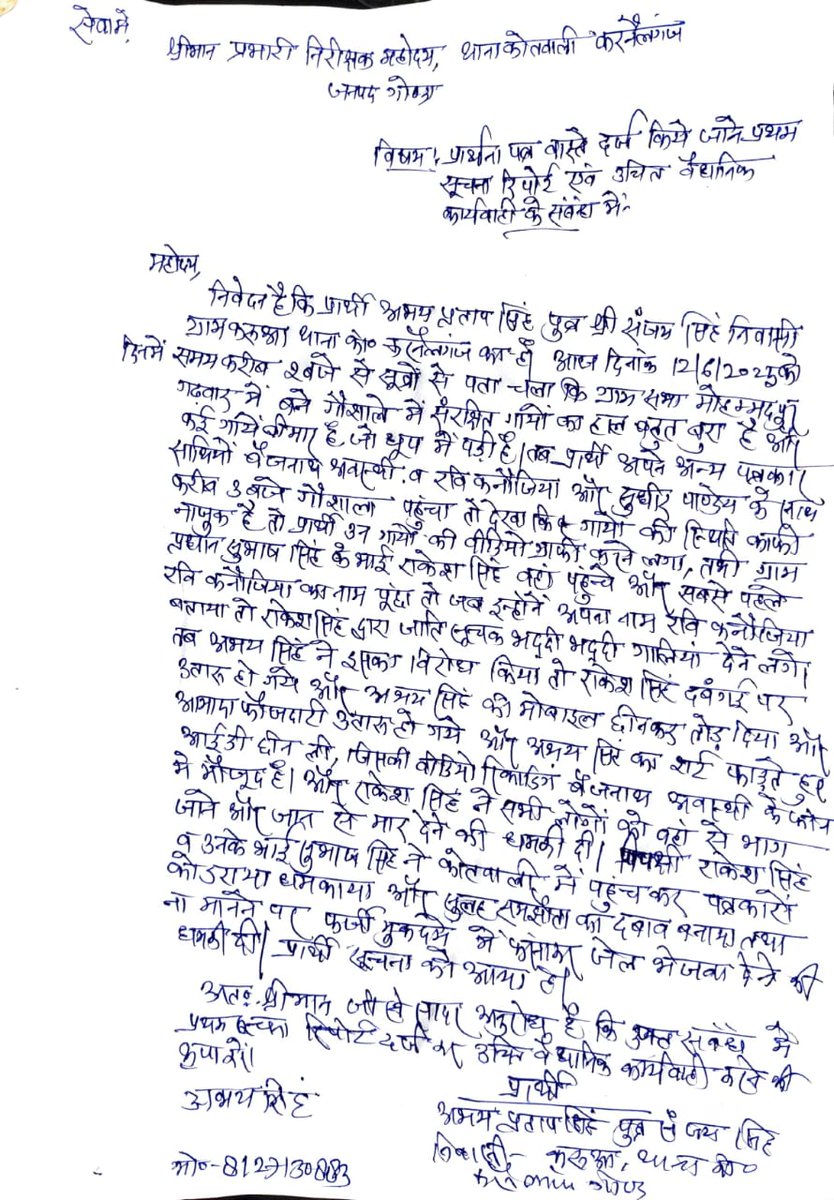 सेवामें,
श्रीमान प्रभारी निरीक्षक महोदय, थाना कोतवाली करनैलगंज
जनपद गोण्डा
विषय: प्रार्थना पत्र वास्ते दर्ज किये जाने प्रथम
सूचना रिपोर्ट एवं उचित वैधानिक
कार्यवाही के संबंध में-
महोदय,
निवेदन है कि प्रार्थी अभय प्रताप सिंह पुत्र श्री संजय सिंह निवासी
ग्राम करुआ थाना को० करनैलगंज का है। आज दिनांक 12/6/2025 को
दिन में समय करीब 2 बजे से सूत्रों से पता चला कि ग्राम सभा मोहम्मदपुर
गढ़वार में बने गौशाले में संरक्षित गायों का हाल बहुत बुरा है और
कई गायें बीमार है, जो धूप में पड़ी है। तब प्रार्थी अपने अन्य पत्रकार
साथियों बैजनाथ अवस्थी व रवि कनौजिया और सुधीर पाण्डेय के साथ
करीब 3 बजे गौशाला पहुंचा तो देखा कि गायों की स्थिति काफी
नाजुक है तो प्रार्थी उन गायों की वीडियो ग्राफी करने लगा, तभी ग्राम
प्रधान सुभाष सिंह के भाई राकेश सिंह वहां पहुंचे और सबसे पहले
रवि कनौजिया का नाम पूंछा तो जब इन्होंने अपना नाम रवि कनौजिया
बताया तो राकेश सिंह द्वारा जाति सूचक भद्दी भद्दी गालियां देने लगे।
तब अभय सिंह ने इसका विरोध किया तो राकेश सिंह दबंगई पर
उतारू हो गये और अभय सिंह की मोबाइल छीनकर तोड़ दिया और
आमादा फौजदारी उतारू हो गये और अभय सिंह का शर्ट फाड़ते हुए
आईडी छीन ली, जिसकी वीडियो रिकॉडिंग बैजनाथ अवस्थी के फोन
में मौजूद है। और राकेश सिंह ने सभी लोगों को वहां से भाग
जाने और जान से मार देने की धमकी दी। राकेश सिंह
व उनके भाई सुभाष सिंह ने कोतवाली में पहुंच कर पत्रकारों
को डराया धमकाया और सुलह समझौता का दबाव बनाया तथा
ना मानने पर फर्जी मुकदमे में फंसाकर जेल भेजवा देने की
धमकी दी। प्रार्थी सूचना को आया है।
अतः श्रीमान जी से सादर अनुरोध है कि उक्त संबंध में
प्रथम सूचना रिपोर्ट दर्ज कर उचित वैधानिक कार्यवाही करने की
कृपा करें।
प्रार्थी
अभय सिंह
अभय प्रताप सिंह पुत्र संजय सिंह
निवासी- करुआ, थाना को०
करनैलगंज गोण्डा
मो०-